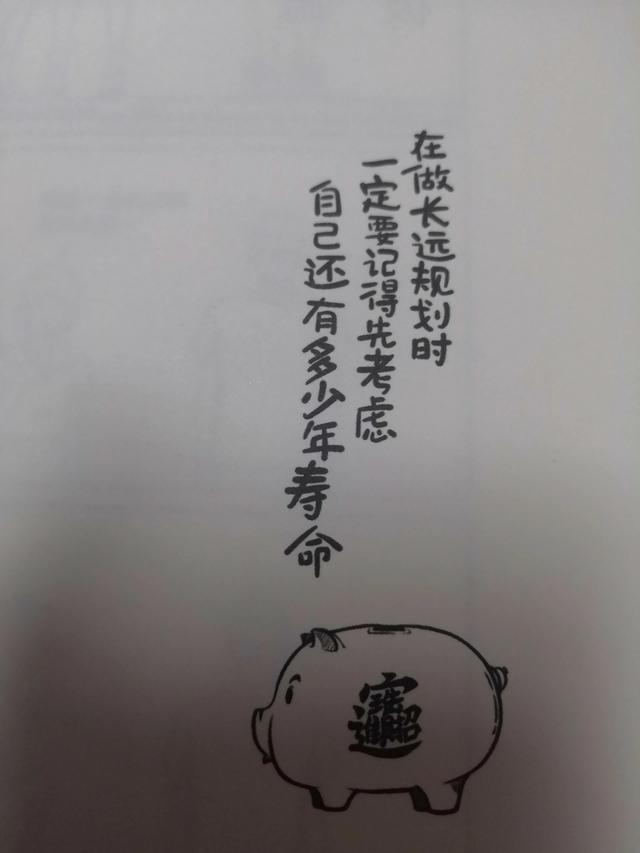 在做长远规划时
一定要记得先考虑
自己还有多少年寿命
招财进宝